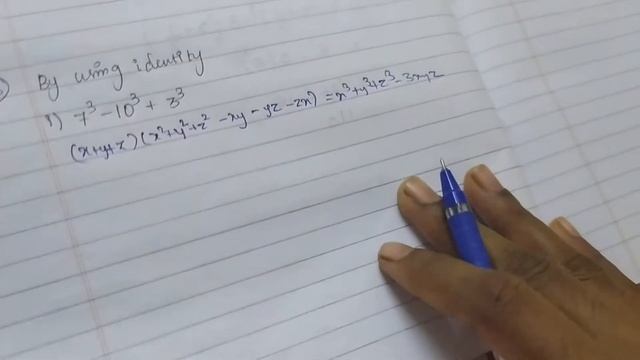 By using identity
1) 7³ - 10³ + 3³
(x+y+z) (x²+y²+z² - xy - yz - zx) = x³+y³+z³ - 3xyz